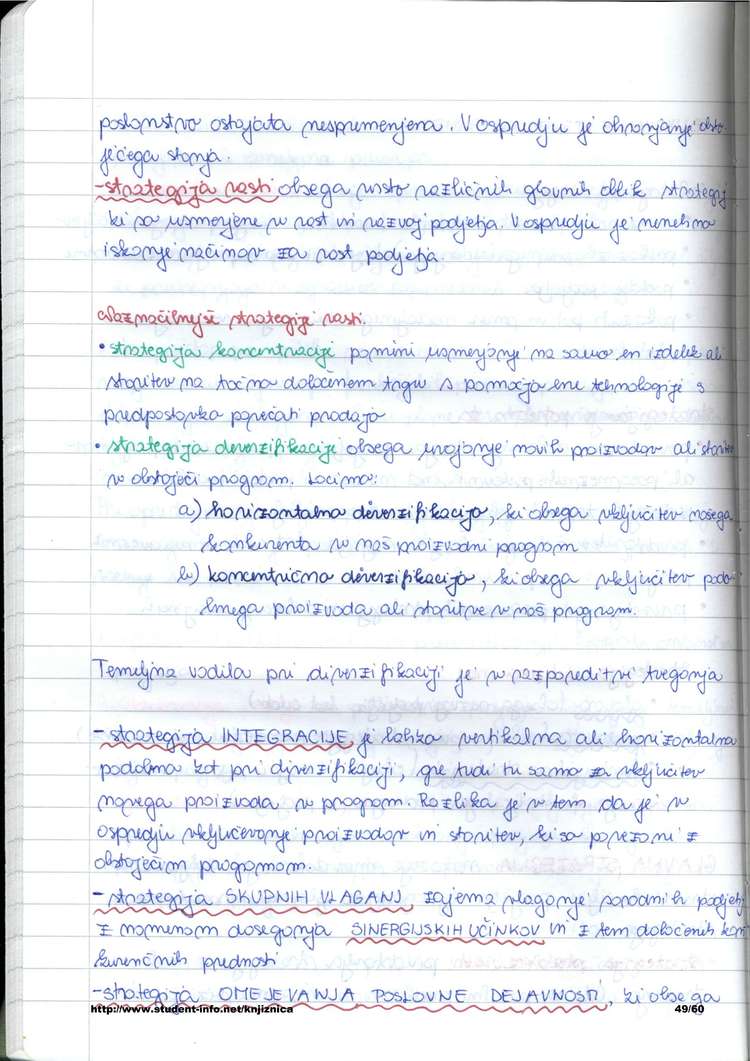 poslanstvo ostajata nespremenjena. V ospredju je ohranjanje obsto
ječega stanja.
-strategija rasti obsega vrsto različnih glavnih oblik strategij
ki so usmerjene v rast in razvoj podjetja. V ospredju je nenehno
iskanje načinov za rast podjetja.
Najznačilnejše strategije rasti.
• strategija koncentracije pomeni usmerjanje na samo en izdelek ali
storitev na točno določenem trgu s pomočjo ene tehnologije s
predpostavko povečati prodajo
• strategija diverzifikacije obsega uvajanje novih proizvodov ali storitev
v obstoječi program. Ločimo:
a) horizontalna diverzifikacija, ki obsega vključitev našega
konkurenta v naš proizvodni program
b) koncentrična diverzifikacija, ki obsega vključitev podo
bnega proizvoda ali storitve v naš program.
Temeljna vodila pri diverzifikaciji je v razporeditvi tveganja
- strategija INTEGRACIJE je lahko vertikalna ali horizontalna
podobno kot pri diverzifikaciji, gre tudi tu samo za vključitev
novega proizvoda v program. Razlika je v tem da je v
ospredju vključevanje proizvodov in storitev, ki so povezani z
obstoječim programom.
- strategija SKUPNIH VLAGANJ zajema vlaganje sorodnih podjetij
z namenom doseganja SINERGIJSKIH UČINKOV in z tem določenih kon
kurenčnih prednosti
-strategija OMEJEVANJA POSLOVNE DEJAVNOSTI, ki obsega
http://www.student-info.net/knjiznica 49/60